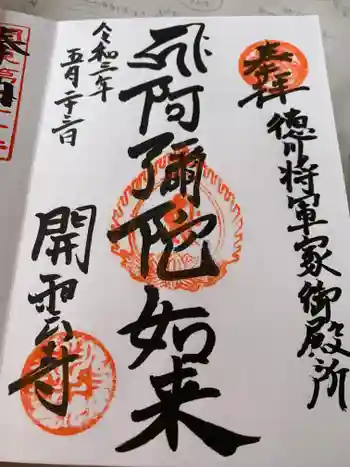 奉拝
徳川将軍家御殿所
阿弥陀如来
令和三年
五月二十三日
開雲寺